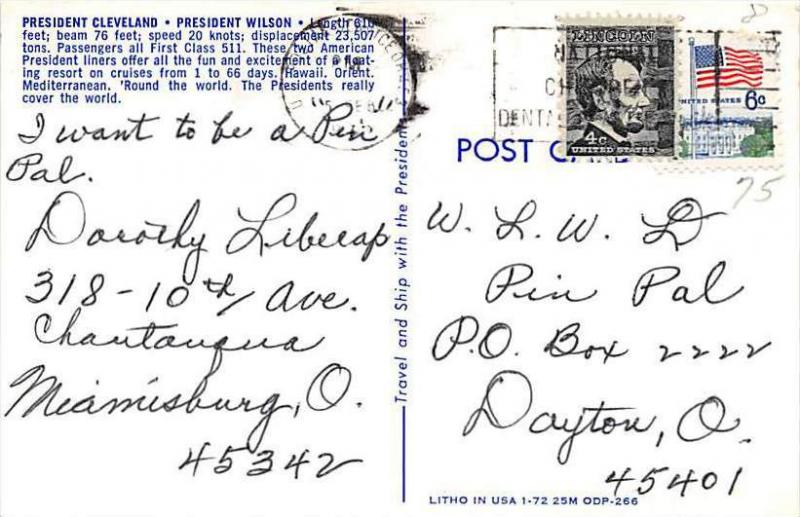 PRESIDENT CLEVELAND • PRESIDENT WILSON • Length 610
feet; beam 76 feet; speed 20 knots; displacement 23,507
tons. Passengers all First Class 511. These two American
President liners offer all the fun and excitement of a float-
ing resort on cruises from 1 to 66 days. Hawaii. Orient.
Mediterranean. 'Round the world. The Presidents really
cover the world.
I want to be a Pin
Pal.
Dorothy Libecap
318-10th Ave.
Chautauqua
Miamisburg, O.
45342
Travel and Ship with the President
NATIONAL
CHILDREN
DENTA
LINCOLN
4c
UNITED STATES
UNITED STATES 6c
POST CARD
75
W. L. W. D
Pin Pal
P.O. Box 2222
Dayton, O.
45401
LITHO IN USA 1-72 25M ODP-266